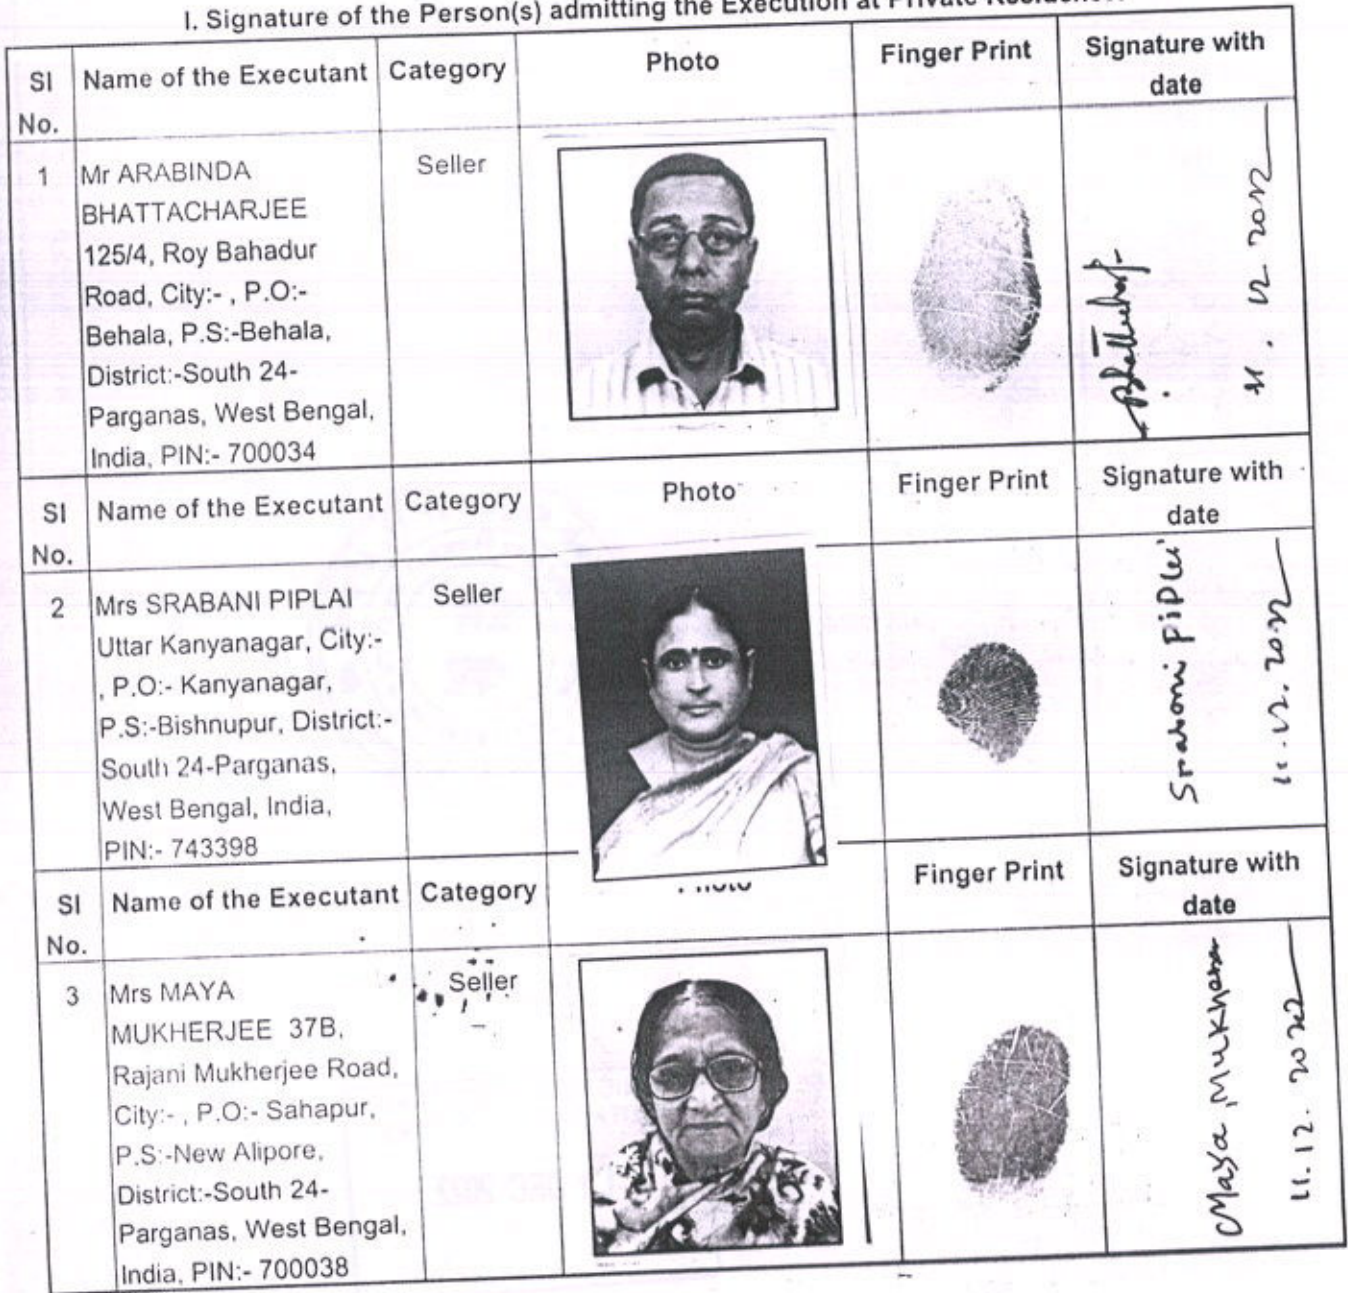 I. Signature of the Person(s) admitting the Execution at Private Residence.
Sl No.
Name of the Executant
Category
Photo
Finger Print
Signature with date
1
Mr ARABINDA
BHATTACHARJEE
125/4, Roy Bahadur
Road, City:- , P.O:-
Behala, P.S:-Behala,
District:-South 24-
Parganas, West Bengal,
India, PIN:- 700034
Seller
11.12.2022
Sl No.
Name of the Executant
Category
Photo
Finger Print
Signature with date
2
Mrs SRABANI PIPLAI
Uttar Kanyanagar, City:-
, P.O:- Kanyanagar,
P.S:-Bishnupur, District:-
South 24-Parganas,
West Bengal, India,
PIN:- 743398
Seller
Srabani Piplai
11.12.2022
Sl No.
Name of the Executant
Category
Photo
Finger Print
Signature with date
3
Mrs MAYA
MUKHERJEE 37B,
Rajani Mukherjee Road,
City:- , P.O:- Sahapur,
P.S:-New Alipore,
District:-South 24-
Parganas, West Bengal,
India, PIN:- 700038
Seller
Maya Mukherjee
11.12.2022